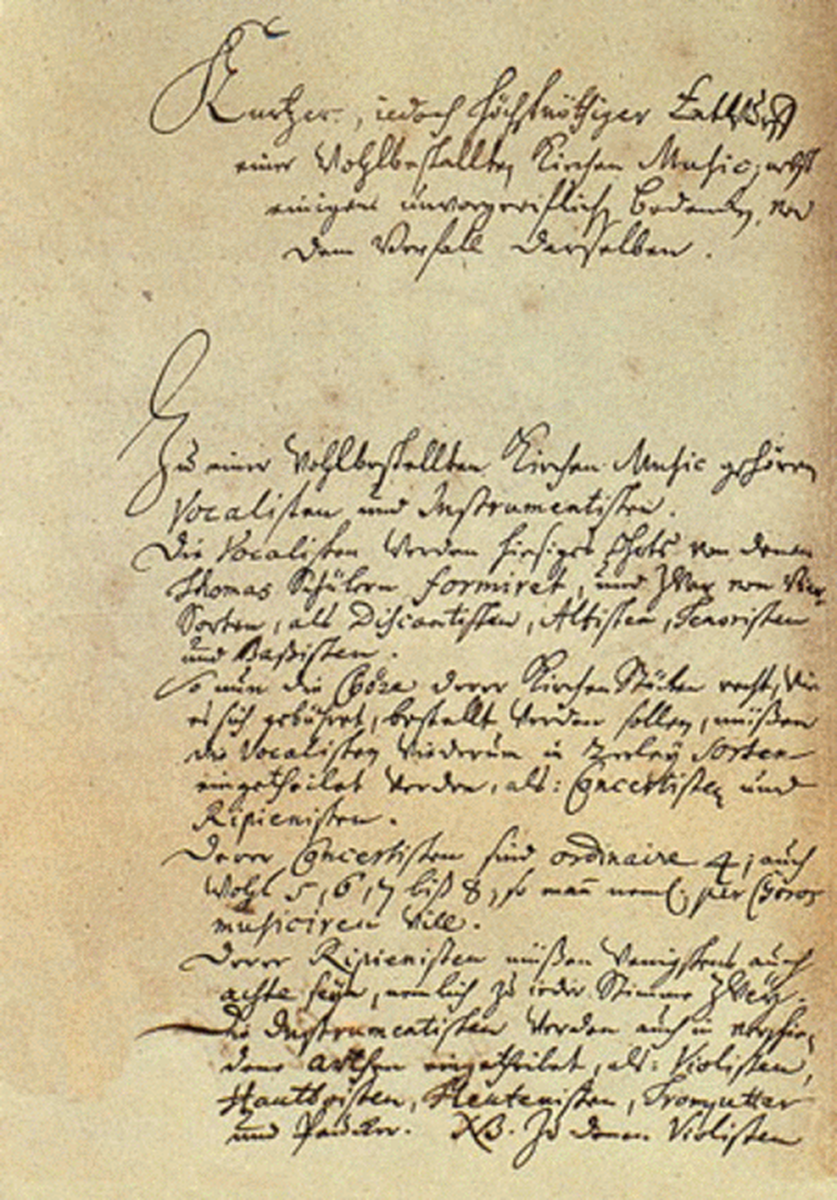 Kurtzer, iedoch höchstnöthiger Entwurff
einer wohlbestallten Kirchen Music; nebst
einigem unvorgreiflichen Bedencken von
dem Verfall derselben.
Zu einer wohlbestellten Kirchen Music gehören
Vocalisten und Instrumentisten.
Die Vocalisten werden hiesiges Ohrts von denen
Thomas Schülern formiret, und zwar von vier
Sorten, als Discantisten, Altisten, Tenoristen
und Baßisten.
So nun die Chöre derer Kirchen Stücken recht, wie
es sich gebühret, bestellt werden sollen, müßen
die Vocalisten wiederum in 2erley Sorten
eingetheilet werden, als: Concertisten und
Ripienisten.
Derer Concertisten sind ordinaire 4; auch
wohl 5, 6, 7 biß 8; so man neml. per Choros
musiciren will.
Derer Ripienisten müßen wenigstens auch
achte seyn, nemlich zu ieder Stimme zwey.
Die Instrumentisten werden auch in verschie-
dene arthen eingetheilet, als: Violisten,
Hautboisten, Fleutenisten, Trompetter
und Paucker. NB. Zu denen Violisten